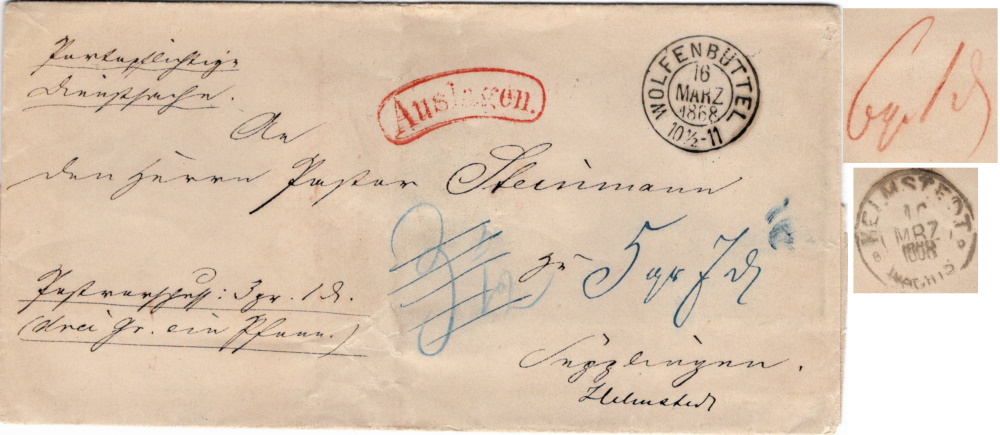 Portopflichtige
Dienstsache.
Auslagen.
WOLFENBÜTTEL
16
MÄRZ
1868
10½-11
An
den Herrn Pastor Steinmann
zu
5 gr 7 d
Postvorschuss: 3 gr. 1 d.
(drei Gr. ein Pfenn.)
Süpplingen.
Helmstedt
6 gr 1 d
HELMSTEDT
16
MRZ
1868
NACHTS